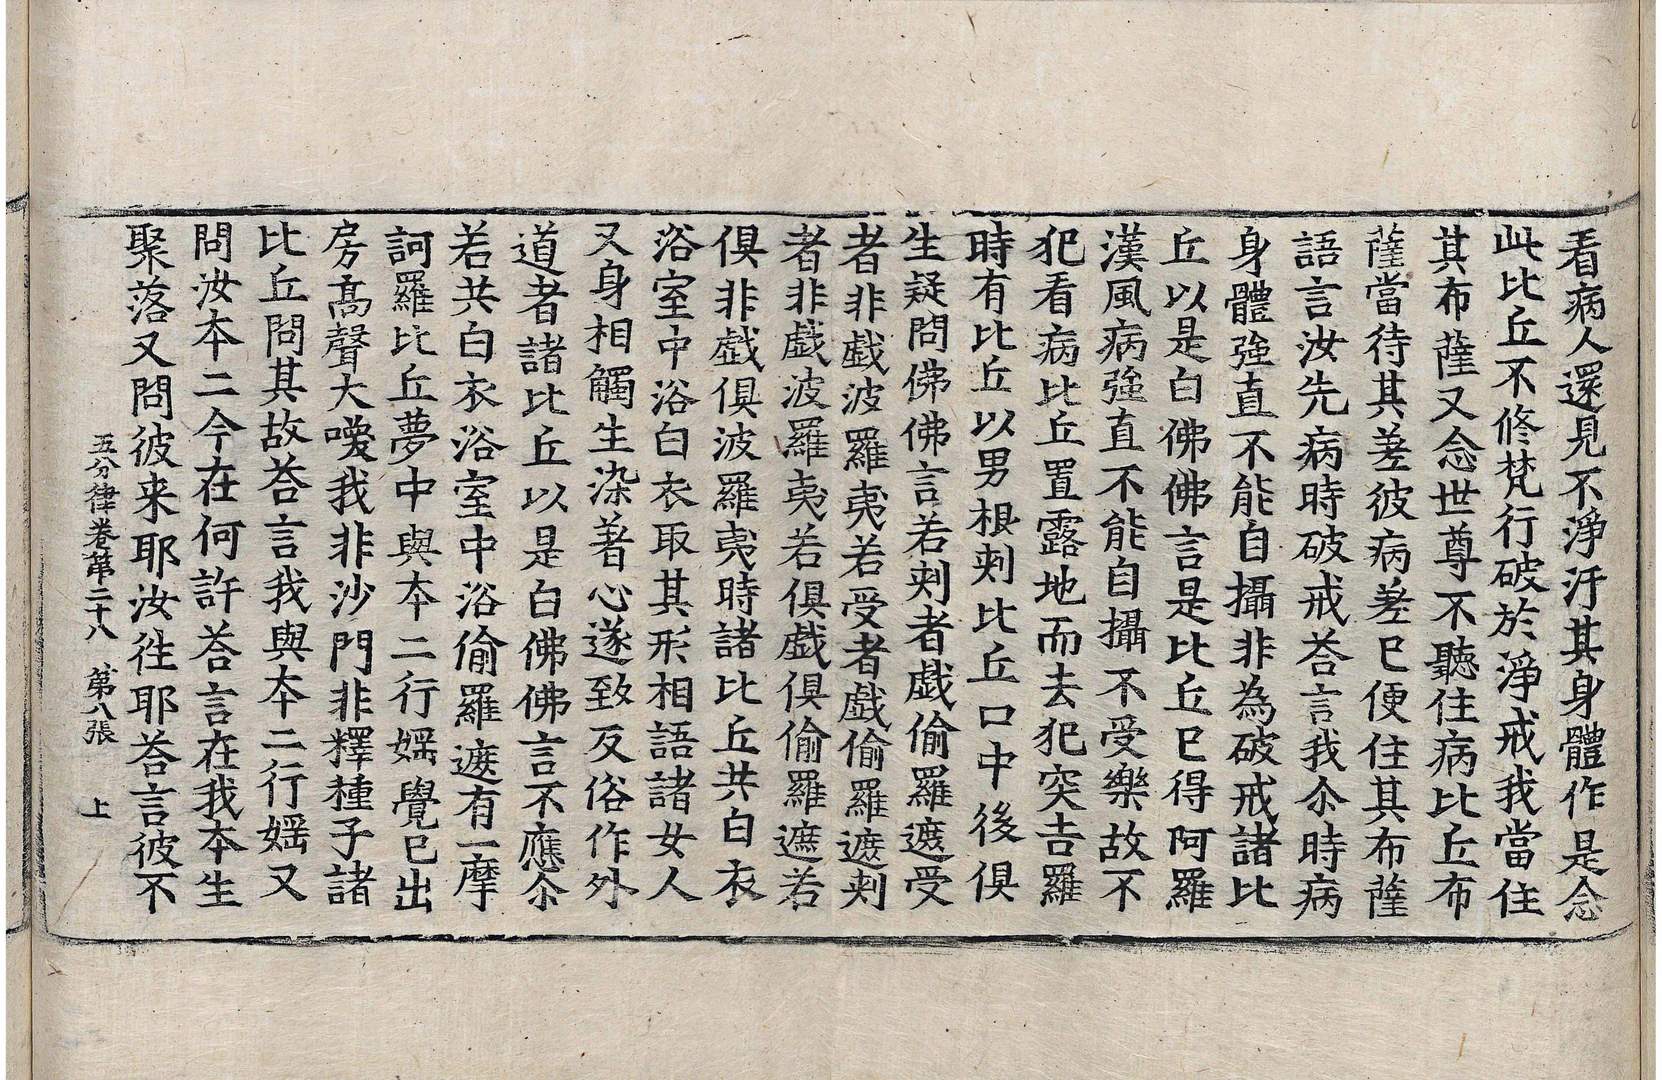 看病人還見不淨汙其身體作是念
此比丘不修梵行破於淨戒我當住
其布薩又念世尊不聽住病比丘布
薩當待其差彼病差已便住其布薩
語言汝先病時破戒荅言我尒時病
身體強直不能自攝非為破戒諸比
丘以是白佛佛言是比丘已得阿羅
漢風病強直不能自攝不受樂故不
犯看病比丘置露地而去犯突吉羅
時有比丘以男根刺比丘口中後俱
生疑問佛佛言若刺者戲偷羅遮受
者非戲波羅夷若受者戲偷羅遮刺
者非戲波羅夷若俱戲俱偷羅遮若
俱非戲俱波羅夷時諸比丘共白衣
浴室中浴白衣取其形相語諸女人
又身相觸生染著心遂致反俗作外
道者諸比丘以是白佛佛言不應尒
若共白衣浴室中浴偷羅遮有一摩
訶羅比丘夢中與本二行婬覺已出
房高聲大喚我非沙門非釋種子諸
比丘問其故荅言我與本二行婬又
問汝本二今在何許荅言在我本生
聚落又問彼来耶汝往耶荅言彼不
五分律卷第二十八　第八張　上